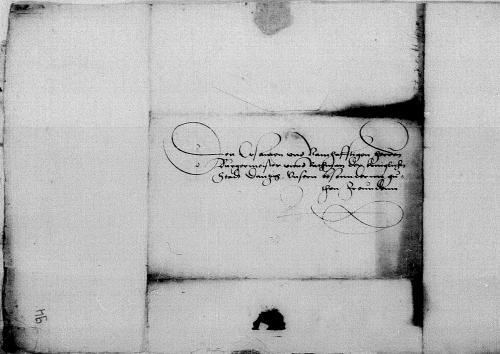 Den Ersamen vnd Namhafftigen herren
Burgermeister vnnd Rathman der koniglichē
Stadt Dantzig Vnsern besonderenn gu-
then Freunden
94